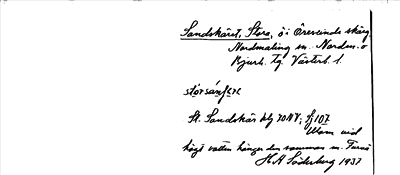 Sandskäret, Stora, ö i Öresunds skärg
Nordmaling sn. Nordm. o
Bjurh. tg. Västerb. l.
stórsánʃɛrɛ
St. Sandskär blg 70 NV, Sj 107
Utom vid
högt vatten hänger den samman m.
H A Söderberg 1937